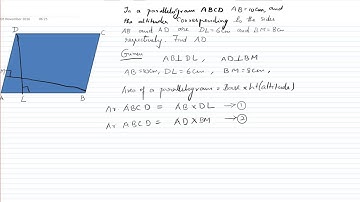 In a parallelogram ABCD AB=10cm and
the altitudes corresponding to the sides
AB and AD are DL=6cm and BM=8cm
respectively. Find AD
Given AB⊥DL , AD⊥BM
AB=10cm, DL=6cm, BM=8cm,
Area of a parallelogram = Base x ht(altitude)
Ar ABCD = AB x DL → ①
Ar ABCD = AD x BM → ②
D
C
M
A
L
B